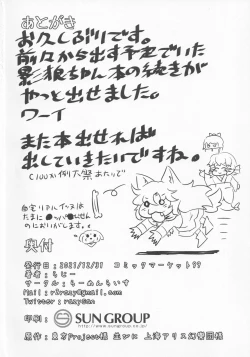 あとがき
お久しぶりです。
前々から出す予定でいた
影狼ちゃん本の続きが
やっと出せました。
ワーイ
また本出せれば
出していきたいですね。
C100か例大祭あたりで
自宅リアルイッヌは
たまに
のにおいがします。
奥付
発行日：2021/12/31 コミックマーケット99
著者：らじー
サークル：らーめんらいす
Mail：
Twitter：
印刷：SUN GROUP
http://www.sungroup.co.jp/
原作：東方Project様 主ツに 上海アリス幻樂団様